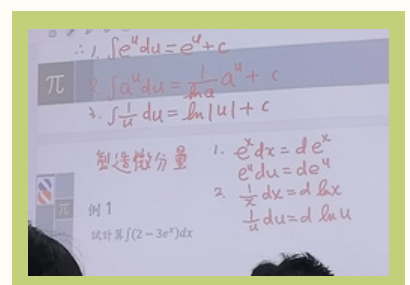 ∴ 1. ∫eᵘdu = eᵘ + c
π
2. ∫aᵘdu = 1/ln a aᵘ + c
3. ∫1/u du = ln|u| + c
製造微分量 1. eˣdx = deˣ
eᵘdu = deᵘ
2. 1/x dx = d lnx
1/u du = d lnu
π
例 1
試計算∫(2 − 3eˣ)dx